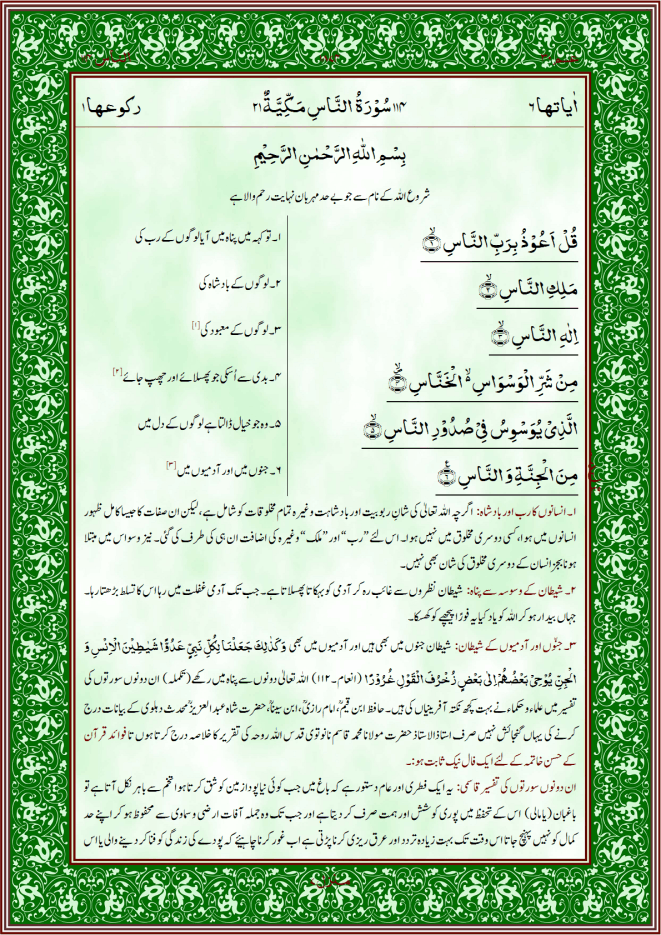 اٰیاتها ۶
۱۱۴ سُوْرَةُ النَّاسِ مَكِّيَّةٌ ۲۱
رکوعها ۱
بِسْمِ اللّٰهِ الرَّحْمٰنِ الرَّحِيْمِ
شروع اللہ کے نام سے جو بے حد مہربان نہایت رحم والا ہے
قُلْ اَعُوْذُ بِرَبِّ النَّاسِ ۙ﴿۱﴾
۱۔ تو کہہ میں پناہ میں آیا لوگوں کے رب کی
مَلِكِ النَّاسِ ۙ﴿۲﴾
۲۔ لوگوں کے بادشاہ کی
اِلٰهِ النَّاسِ ۙ﴿۳﴾
۳۔ لوگوں کے معبود کی [۱]
مِنْ شَرِّ الْوَسْوَاسِ ۙ۬ الْخَنَّاسِ ۙ﴿۴﴾
۴۔ بدی سے اُسکی جو پھسلائے اور چھپ جائے [۲]
الَّذِیْ یُوَسْوِسُ فِیْ صُدُوْرِ النَّاسِ ۙ﴿۵﴾
۵۔ وہ جو خیال ڈالتا ہے لوگوں کے دل میں
مِنَ الْجِنَّةِ وَ النَّاسِ ﴿۶﴾
۶۔ جنوں میں اور آدمیوں میں [۳]
۱۔ انسانوں کا رب اور بادشاہ: اگرچہ اللہ تعالیٰ کی شانِ ربوبیت اور بادشاہت وغیرہ تمام مخلوقات کو شامل ہے، لیکن ان صفات کا جیسا کامل ظہور
انسانوں میں ہوا، کسی دوسری مخلوق میں نہیں ہوا۔ اس لئے "رب" اور "ملک" وغیرہ کی اضافت ان ہی کی طرف کی گئی۔ نیز وسواس میں مبتلا
ہونا بجز انسان کے دوسری مخلوق کی شان بھی نہیں۔
۲۔ شیطان کے وسوسہ سے پناہ: شیطان نظروں سے غائب رہ کر آدمی کو بہکاتا پھسلاتا ہے۔ جب تک آدمی غفلت میں رہا اس کا تسلط بڑھتا رہا۔
جہاں بیدار ہو کر اللہ کو یاد کیا یہ فوراً پیچھے کو کھسکا۔
۳۔ جنّوں اور آدمیوں کے شیطان: شیطان جنوں میں بھی ہیں اور آدمیوں میں بھی وَكَذٰلِكَ جَعَلْنَا لِكُلِّ نَبِیٍّ عَدُوًّا شَیٰطِیْنَ الْاِنْسِ وَ
الْجِنِّ یُوْحِیْ بَعْضُهُمْ اِلٰی بَعْضٍ زُخْرُفَ الْقَوْلِ غُرُوْرًا (انعام۔۱۱۲) اللہ تعالیٰ دونوں سے پناہ میں رکھے (تکملہ) ان دونوں سورتوں کی
تفسیر میں علماء و حکماء نے بہت کچھ نکتہ آفرینیاں کی ہیں۔ حافظ ابن قیمؒ، امام رازیؒ، ابن سیناؒ، حضرت شاہ عبد العزیزؒ محدث دہلوی کے بیانات درج
کرنے کی یہاں گنجائش نہیں صرف استاذ الاستاذ حضرت مولانا محمد قاسم نانوتوی قدس اللہ روحہ کی تقریر کا خلاصہ درج کرتا ہوں تا فوائد قرآن
کے حسن خاتمہ کے لئے ایک فال نیک ثابت ہو:۔
ان دونوں سورتوں کی تفسیر قاسمی: یہ ایک فطری اور عام دستور ہے کہ باغ میں جب کوئی نیا پودا زمین کو شق کرتا ہوا تخم سے باہر نکل آتا ہے تو
باغبان (یا مالی) اس کے تحفظ میں پوری کوشش اور ہمت صرف کر دیتا ہے اور جب تک وہ جملہ آفات ارضی و سماوی سے محفوظ ہو کر اپنے حد
کمال کو نہیں پہنچ جاتا اس وقت تک بہت زیادہ تردد اور عرق ریزی کرنا پڑتی ہے اب غور کرنا چاہیئے کہ پودے کی زندگی کو فنا کر دینے والی یا اس